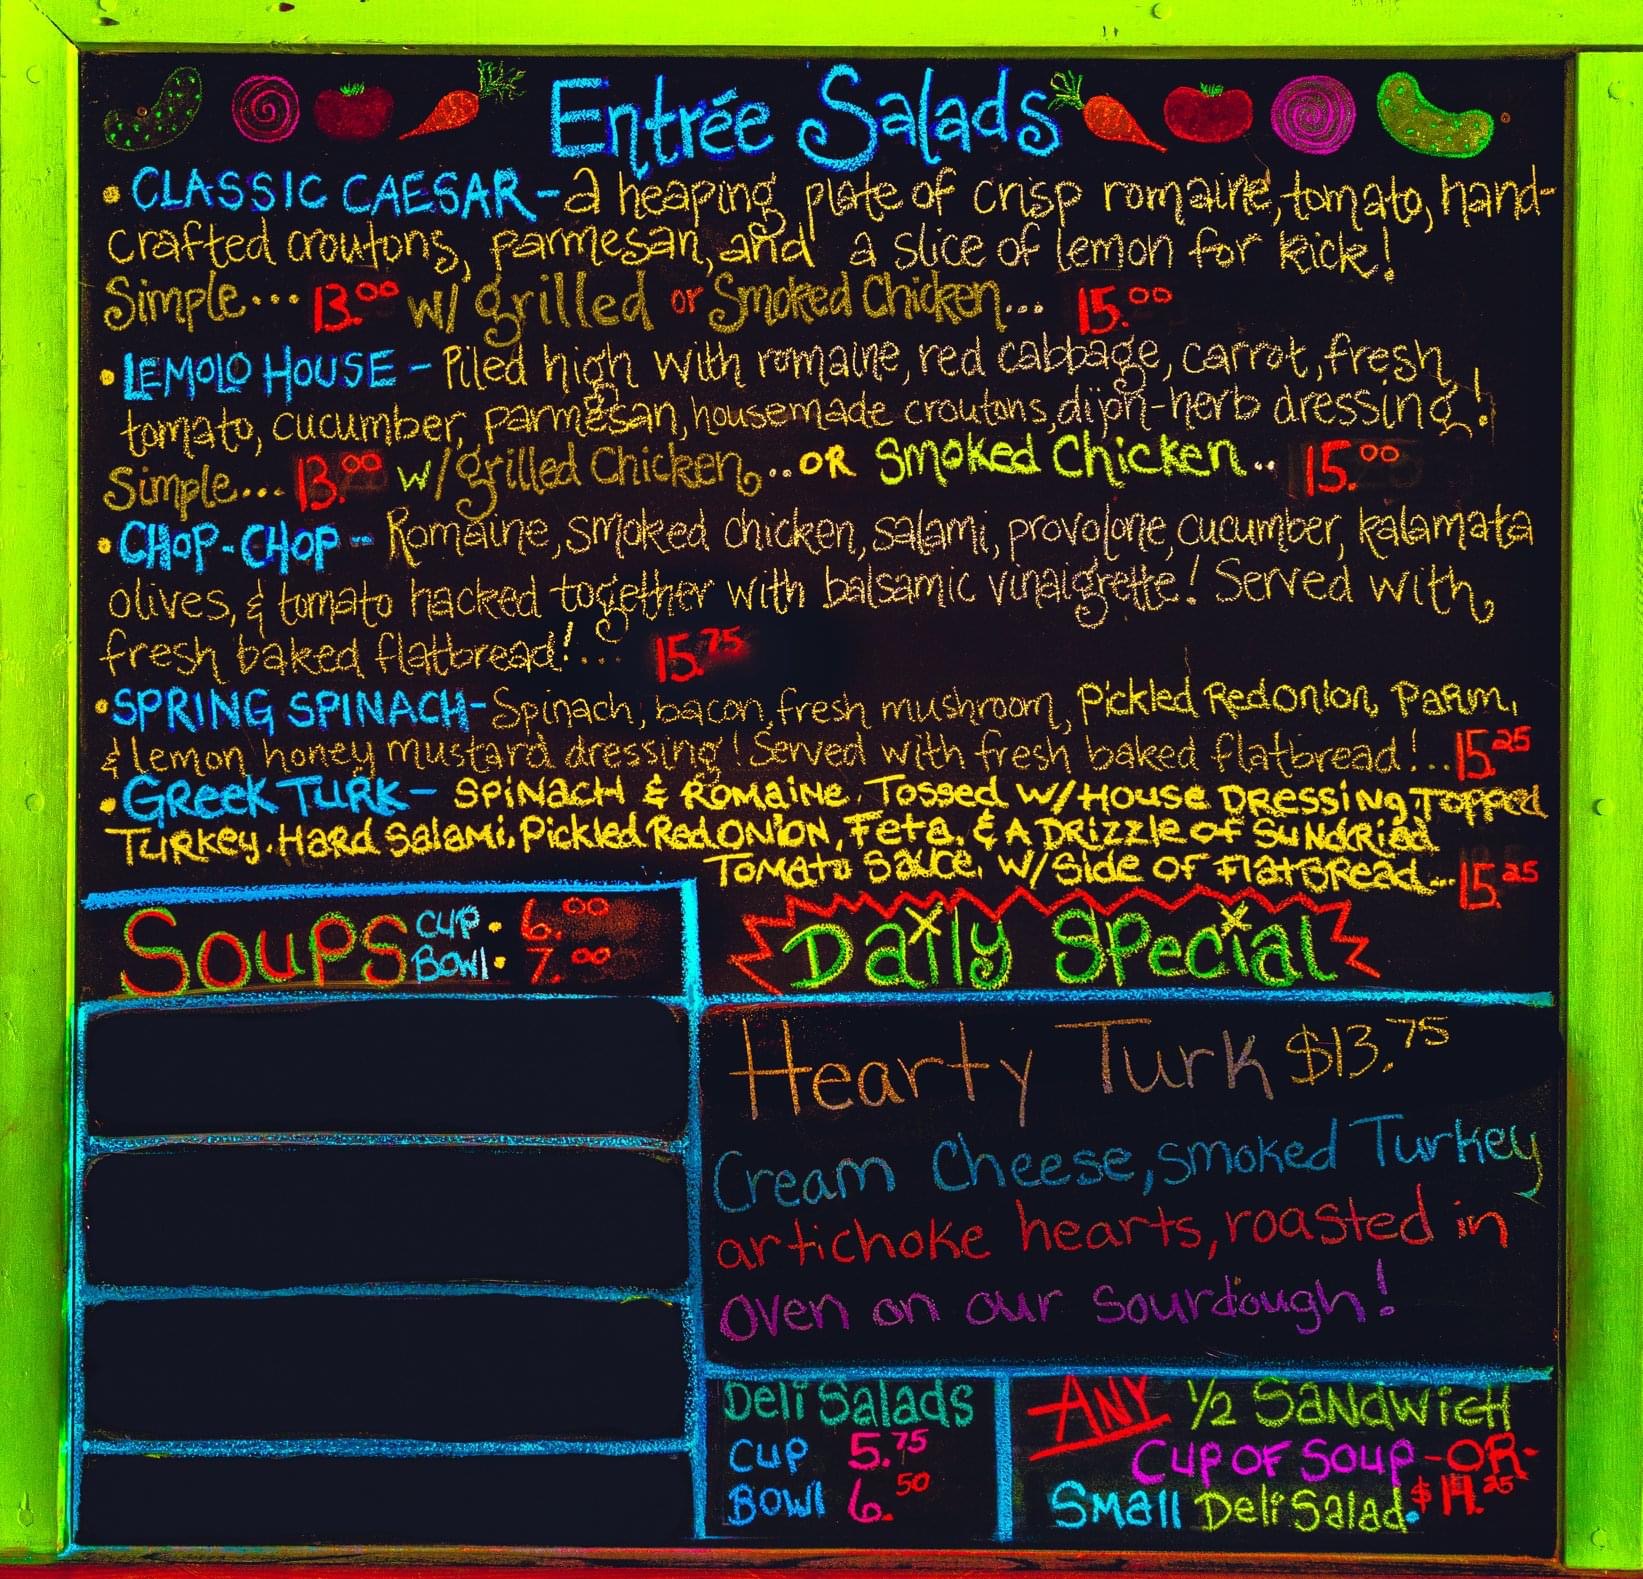 Entrée Salads
• CLASSIC CAESAR - a heaping plate of crisp romaine, tomato, hand-
crafted croutons, parmesan, and a slice of lemon for kick!
Simple... 13.00 w/ grilled or Smoked Chicken... 15.00
• LEMOLO HOUSE - Piled high with romaine, red cabbage, carrot, fresh
tomato, cucumber, parmesan, housemade croutons, dijon-herb dressing!
Simple... 13.00 w/ grilled Chicken... OR Smoked Chicken.. 15.00
• CHOP-CHOP - Romaine, smoked chicken, salami, provolone, cucumber, kalamata
olives, & tomato hacked together with balsamic vinaigrette! Served with
fresh baked flatbread!... 15.75
• SPRING SPINACH - Spinach, bacon, fresh mushroom, Pickled Red onion, Parm,
& lemon honey mustard dressing! Served with fresh baked flatbread!... 15.25
• Greek Turk - Spinach & Romaine, Tossed w/ House Dressing, Topped
Turkey, Hard Salami, Pickled Red Onion, Feta, & A Drizzle of Sundried
Tomato Sauce, w/ Side of Flatbread... 15.25
Soups Cup • 6.00
Bowl • 7.00
Daily Special
Hearty Turk $13.75
Cream Cheese, smoked Turkey
artichoke hearts, roasted in
oven on our Sourdough!
Deli Salads
Cup 5.75
Bowl 6.50
ANY 1/2 Sandwich
Cup of Soup -OR-
Small Deli Salad • $14.25